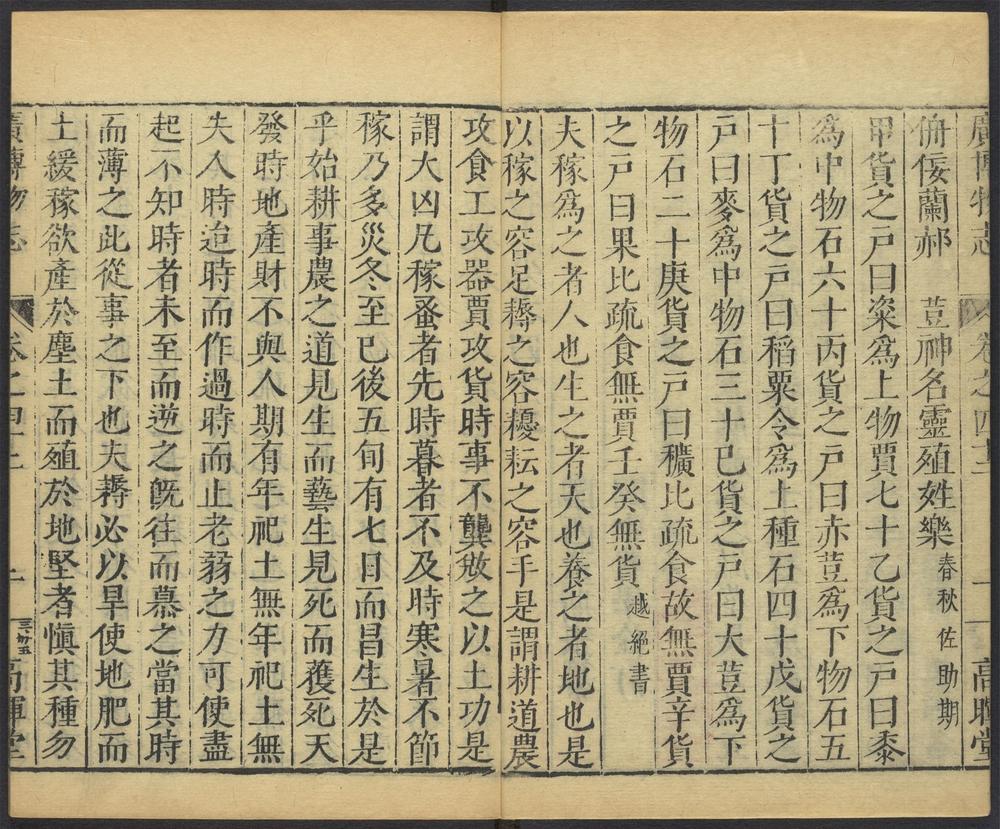 廣博物志 卷之四十二 一 高暉堂
侜倭蘭郝 荳神名靈殖姓樂春秋佐助期
甲貨之戶曰粢爲上物賈七十乙貨之戶曰黍
爲中物石六十丙貨之戶曰赤荳爲下物石五
十丁貨之戶曰稻粟令爲上種石四十戊貨之
戶曰麥爲中物石三十己貨之戶曰大荳爲下
物石二十庚貨之戶曰穬比疏食故無賈辛貨
之戶曰果比疏食無賈壬癸無貨越絕書
夫稼爲之者人也生之者天也養之者地也是
以稼之容足耨之容耰耘之容手是謂耕道農
攻食工攻器賈攻貨時事不龔敓之以土功是
謂大凶凡稼蚤者先時暮者不及時寒暑不節
稼乃多災冬至已後五旬有七日而昌生於是
乎始耕事農之道見生而藝生見死而穫死天
發時地產財不與人期有年祀土無年祀土無
失人時迨時而作過時而止老弱之力可使盡
起不知時者未至而逆之旣往而慕之當其時
而薄之此從事之下也夫耨必以旱使地肥而
土緩稼欲產於塵土而殖於地堅者愼其種勿
廣博物志 卷之四十二 二 三卅五 高暉堂